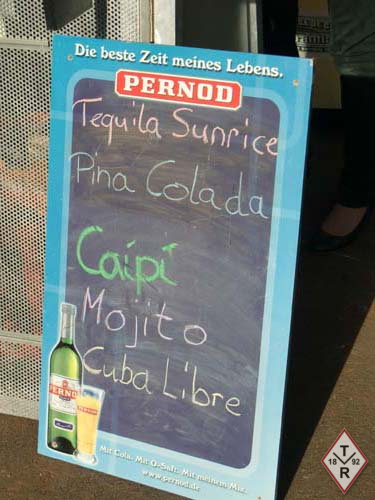 Die beste Zeit meines Lebens.
PERNOD
Tequila Sunrice
Pina Colada
Caipi
Mojito
Cuba Libre
PERNOD
Mit Cola. Mit O-Saft. Mit meinem Mix.
www.pernod.de
T
18 92
R